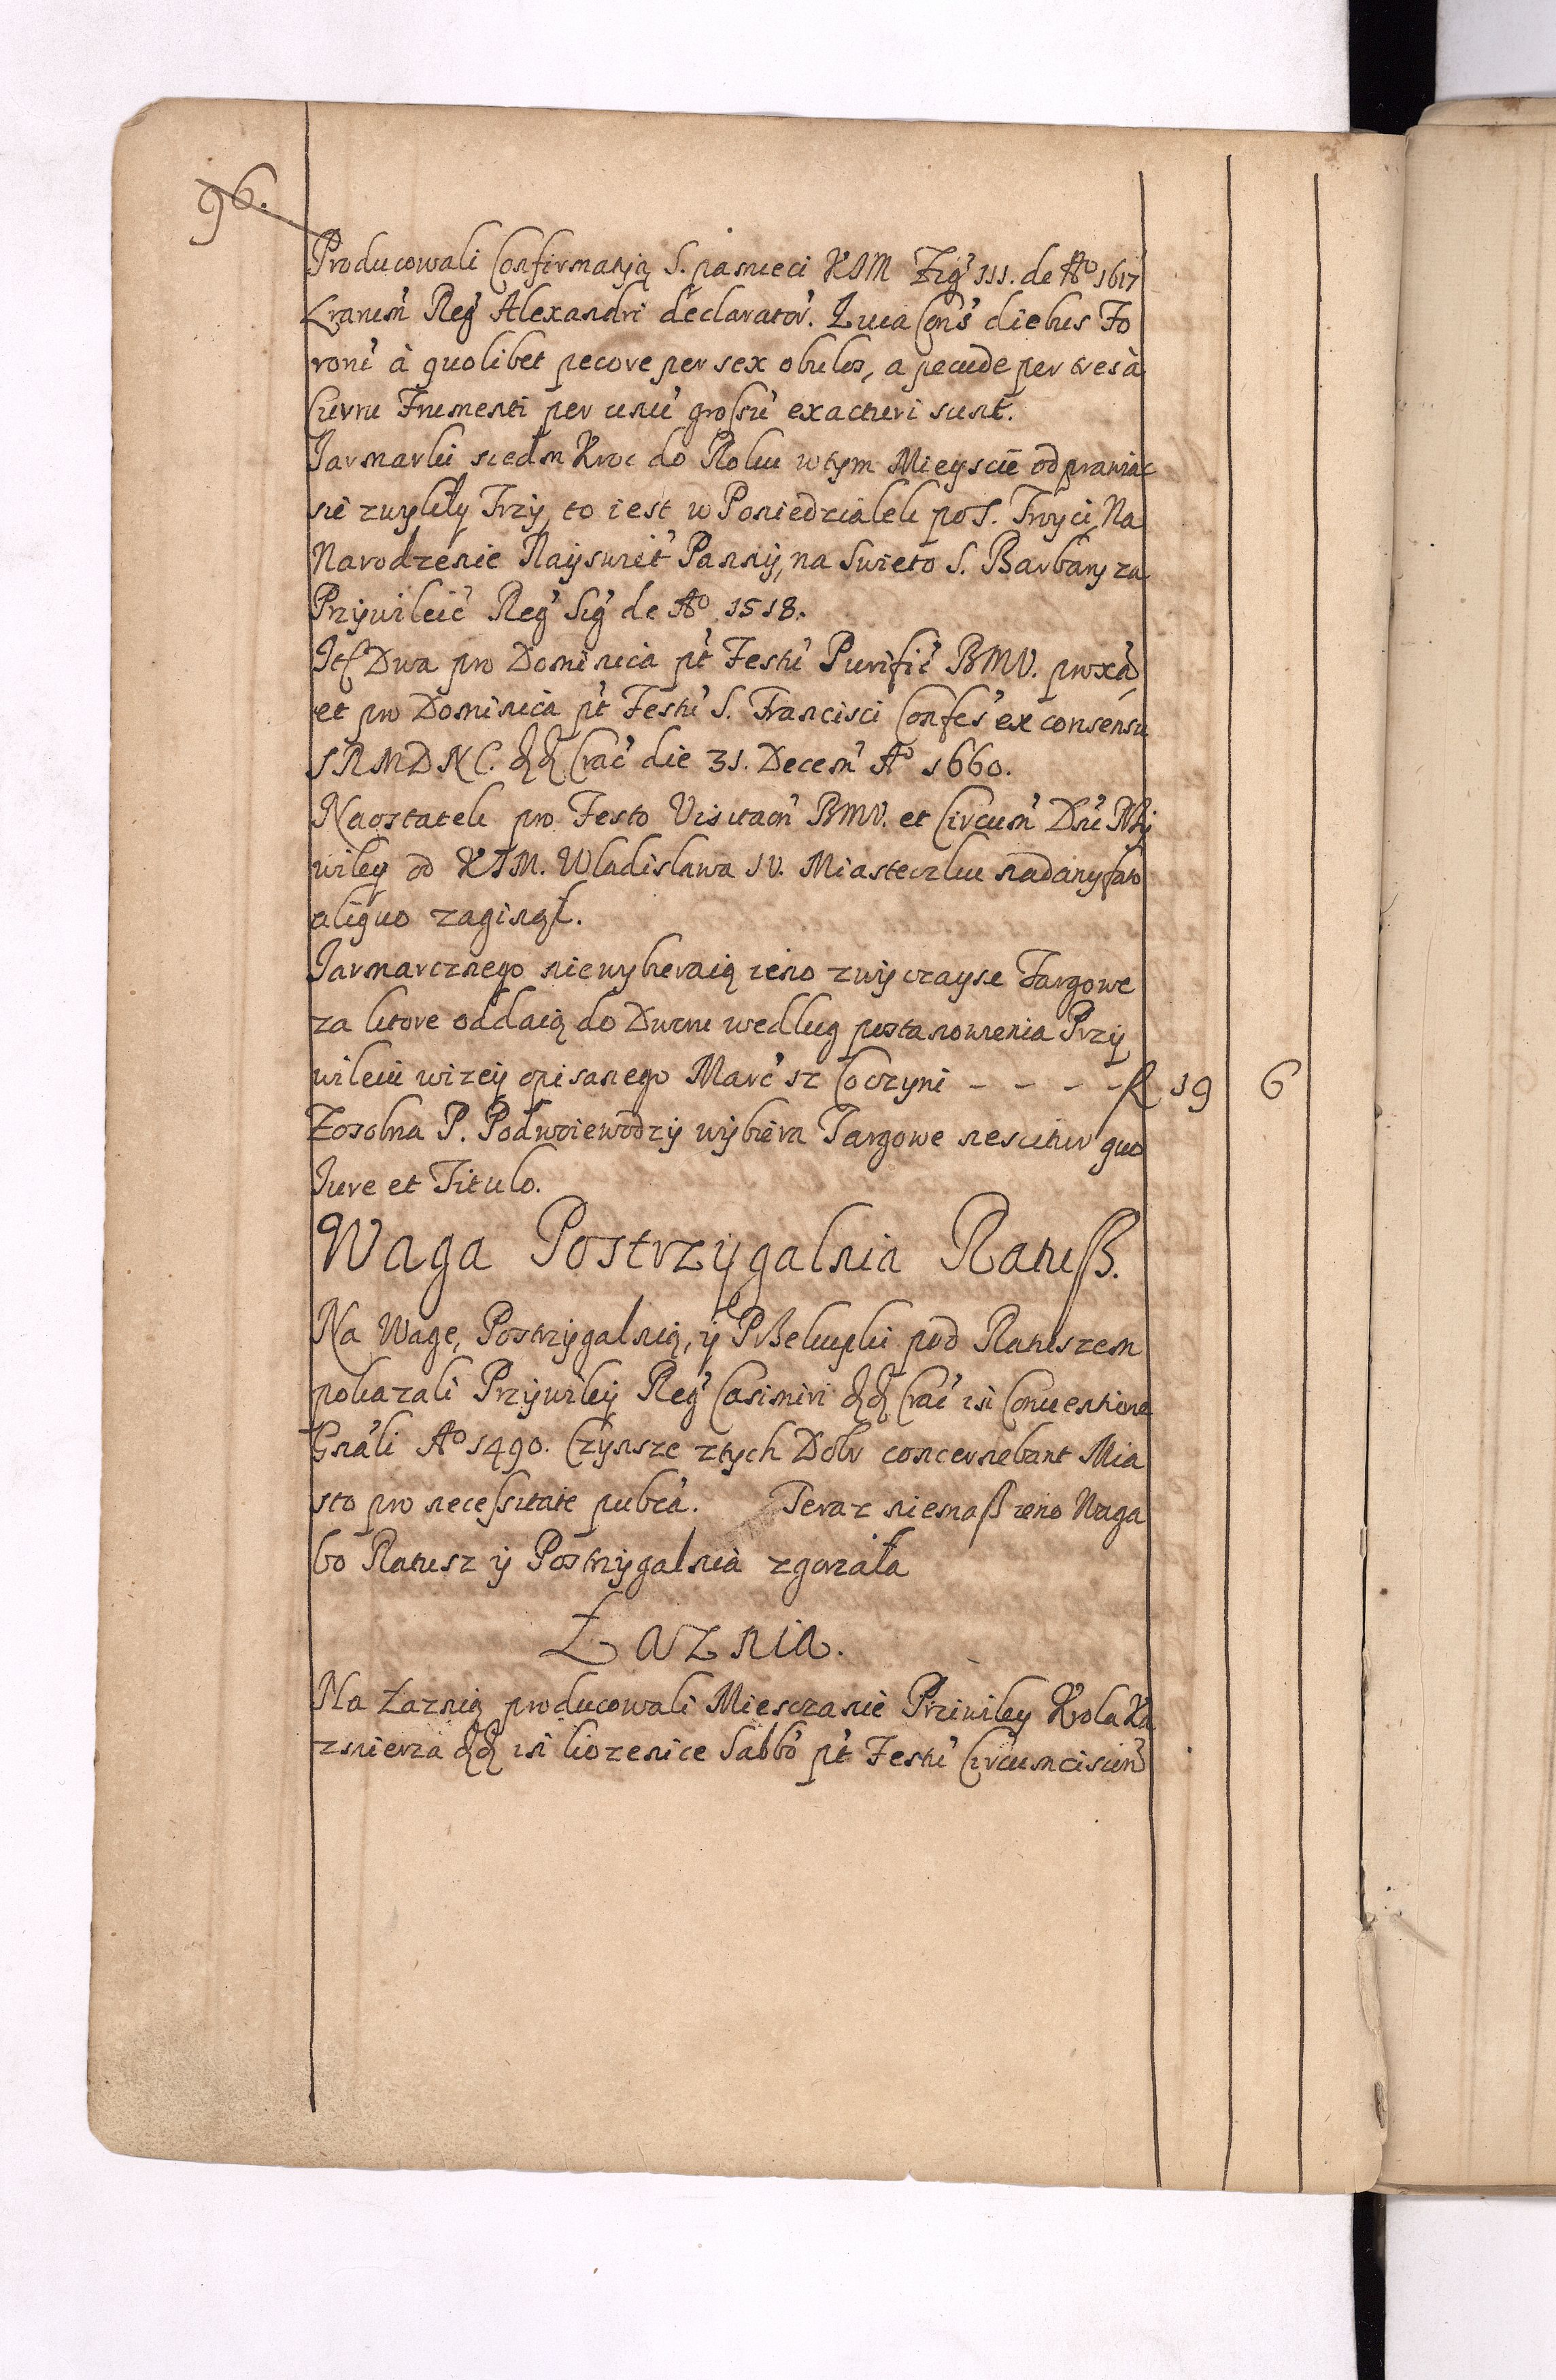 96.
Producowali Confirmatią S. pamieci KJM Zig' III. de Ao 1617
Lrarum' Reg' Alexandri declarator'. Qui Cons' diebus Fo
roru' à quolibet pecore per sex obulos, a pecude per tres à
Curru Frumenti per unu' grossu' exacturi sunt.
Jarmarki siedm Kroc do Roku w tym Mieyscu odprawiac
sie zwykły Trzy, to iest w Poniedziałek po S. Troyci, Na
Narodzenie Nayswiet' Panny, na Swieto S. Barbary za
Przywileie' Reg' Sig' de Ao. 1518.
It' Dwa pro Dominica pt' Festu' Purific' BMV. proxa
et pro Dominica pt' Festu' S. Francisci Confes' ex consensu
SRMDNC. dd Crac' die 31. Decem' Ao 1660.
Naostatek pro Festo Visitaon' BMV. et Circum' Dni' Przy
wiley od KJM. Wladislawa IV. Miasteczku nadany fato
aliquo zaginął.
Jarmarcznego niewybieraią ieno zwyczayne Targowe
za ktore oddaią do Dworu według postanowienia Przy
wileiu wizey opisanego Marc' 12 Co czyni - - - - R 19 6
Zosobna P. Podwoiewodzy wybiera Targowe nescitur quo
Jure et Titulo.
Waga Postrzygalnia Ratuß.
Na Wagę, Postrzygalnią, y Przekupki pod Ratuszem
pokazali Przywiley Reg' Casimiri dd Crac' in Conventione
Gnali Ao 1490. Czynsze z tych Dobr concernebant Mia
sto pro necessitate pubca. Teraz niemaß ieno Waga
bo Ratusz y Postrzygalnia zgorzała
Łaznia.
Na Łaznią producowali Miesczanie Priwiley Krola Ka
zmierza dd in Kozenice Sabbo' pt' Festu' Circumcision'